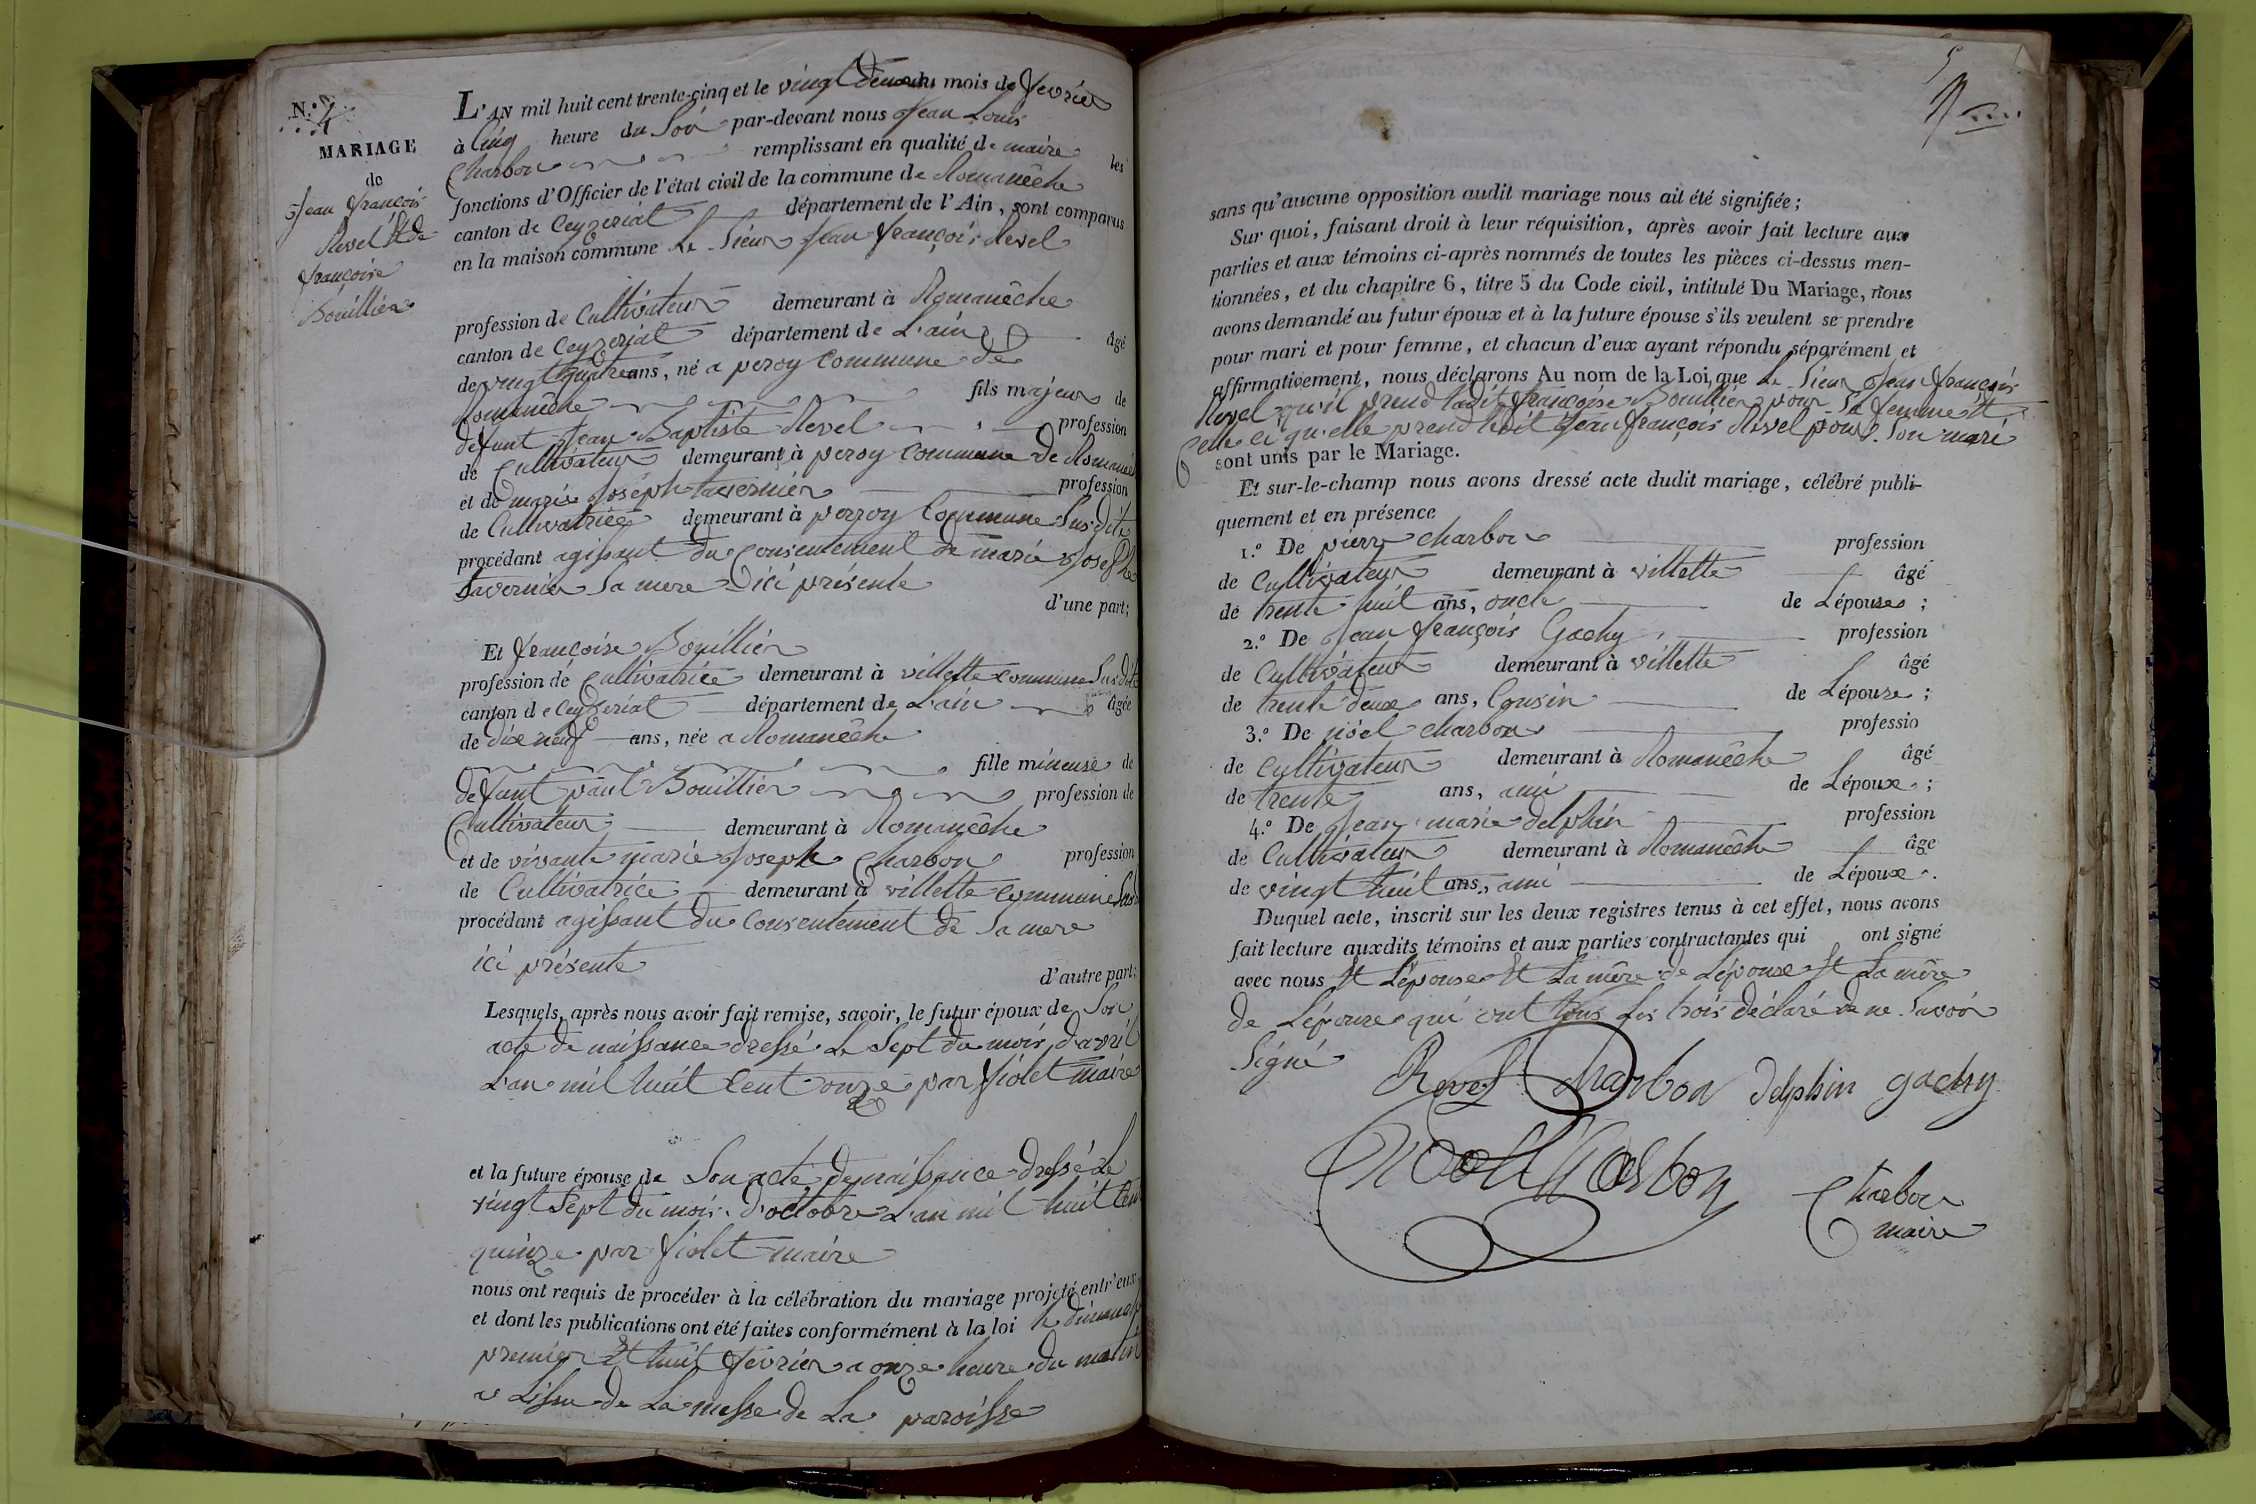 N.º 4
MARIAGE
de
Jean françois
Revel Et de
françoise
Bouillier
L'AN mil huit cent trente-cinq et le vingt deux du mois de fevrier
à Cinq heure du Soir par-devant nous Jean Louis
Charbon remplissant en qualité de maire les
fonctions d'Officier de l'état civil de la commune de Romanêche
canton de Ceyzeriat département de l'Ain, sont comparus
en la maison commune Le Sieur Jean françois Revel
profession de Cultivateur demeurant à Romanêche
canton de Ceyzeriat département de L'ain âgé
de vingt quatre ans, né a peroy commune de
Romanêche fils majeur de
défunt Jean Baptiste Revel profession
de Cultivateur demeurant à peroy commune de
et de marie Joseph tavernier profession
de Cultivatrice demeurant à perroy Commune Susdite
procédant agissant du Consentement de marie Josephe
tavernier Sa mere ici présente
d'une part;
Et françoise Bouillier
profession de Cultivatrice demeurant à villette commune Susdite
canton de Ceyzeriat département de L'ain âgée
de dix neuf ans, née a Romanêche
fille mineuse de
defunt paul Bouillier profession de
Cultivateur demeurant à Romanêche
et de vivante marie Joseph Charbon profession
de Cultivatrice demeurant à villette commune
procédant agissant du Consentement de Sa mere
ici présente
d'autre part;
Lesquels, après nous avoir fait remise, savoir, le futur époux de Son
acte de naissance dressé Le Sept du mois d'avril
L'an mil huit Cent onze par fiolet maire
et la future épouse de Son acte de naissance dressé Le
vingt Sept du mois d'octobre L'an mil huit Cent
quinze par fiolet maire
nous ont requis de procéder à la célébration du mariage projeté entr'eux
et dont les publications ont été faites conformément à la loi le dimanche
premier Et huit février a onze heure du matin
a L'issu de La messe de La paroisse
5
sans qu'aucune opposition audit mariage nous ait été signifiée;
Sur quoi, faisant droit à leur réquisition, après avoir fait lecture aux
parties et aux témoins ci-après nommés de toutes les pièces ci-dessus men-
tionnées, et du chapitre 6, titre 5 du Code civil, intitulé Du Mariage, nous
avons demandé au futur époux et à la future épouse s'ils veulent se prendre
pour mari et pour femme, et chacun d'eux ayant répondu séparément et
affirmativement, nous déclarons Au nom de la Loi que Le Sieur Jean françois
Revel qu'il prend ladite françoise Bouillier pour Sa femme Et
Celle ci qu'elle prend ledit Jean françois Revel pour Son mari
sont unis par le Mariage.
Et sur-le-champ nous avons dressé acte dudit mariage, célébré publi-
quement et en présence
1.º De pierre charbon profession
de Cultivateur demeurant à villette âgé
de trente huit ans, oncle de L'épouse;
2.º De Jean françois Gachy profession
de Cultivateur demeurant à villette âgé
de trente deux ans, Cousin de L'épouse;
3.º De nöel charbon professio
de Cultivateur demeurant à Romanêche âgé
de trente ans, ami de L'époux;
4.º De Jean marie delphin profession
de Cultivateur demeurant à Romanêche âge
de vingt huit ans, ami de L'époux.
Duquel acte, inscrit sur les deux registres tenus à cet effet, nous avons
fait lecture auxdits témoins et aux parties contractantes qui ont signé
avec nous Et L'épouse Et La mère de L'épouse Et La mère
de L'épouse qui ont tous Les trois déclaré de ne Savoir
Signé
Revel Charbon delphin gachy
noel Charbon
Charbon
maire